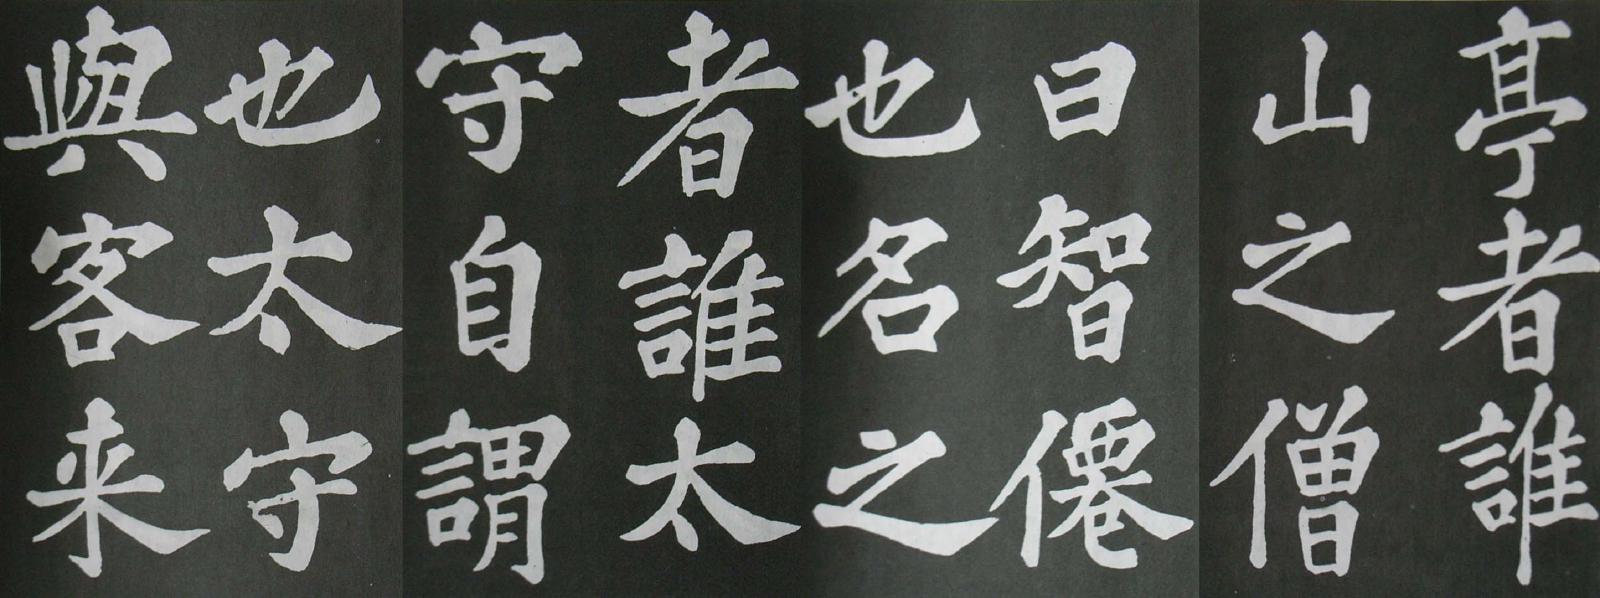 亭者誰
山之僧
曰智僊
也名之
者誰太
守自謂
也太守
與客来